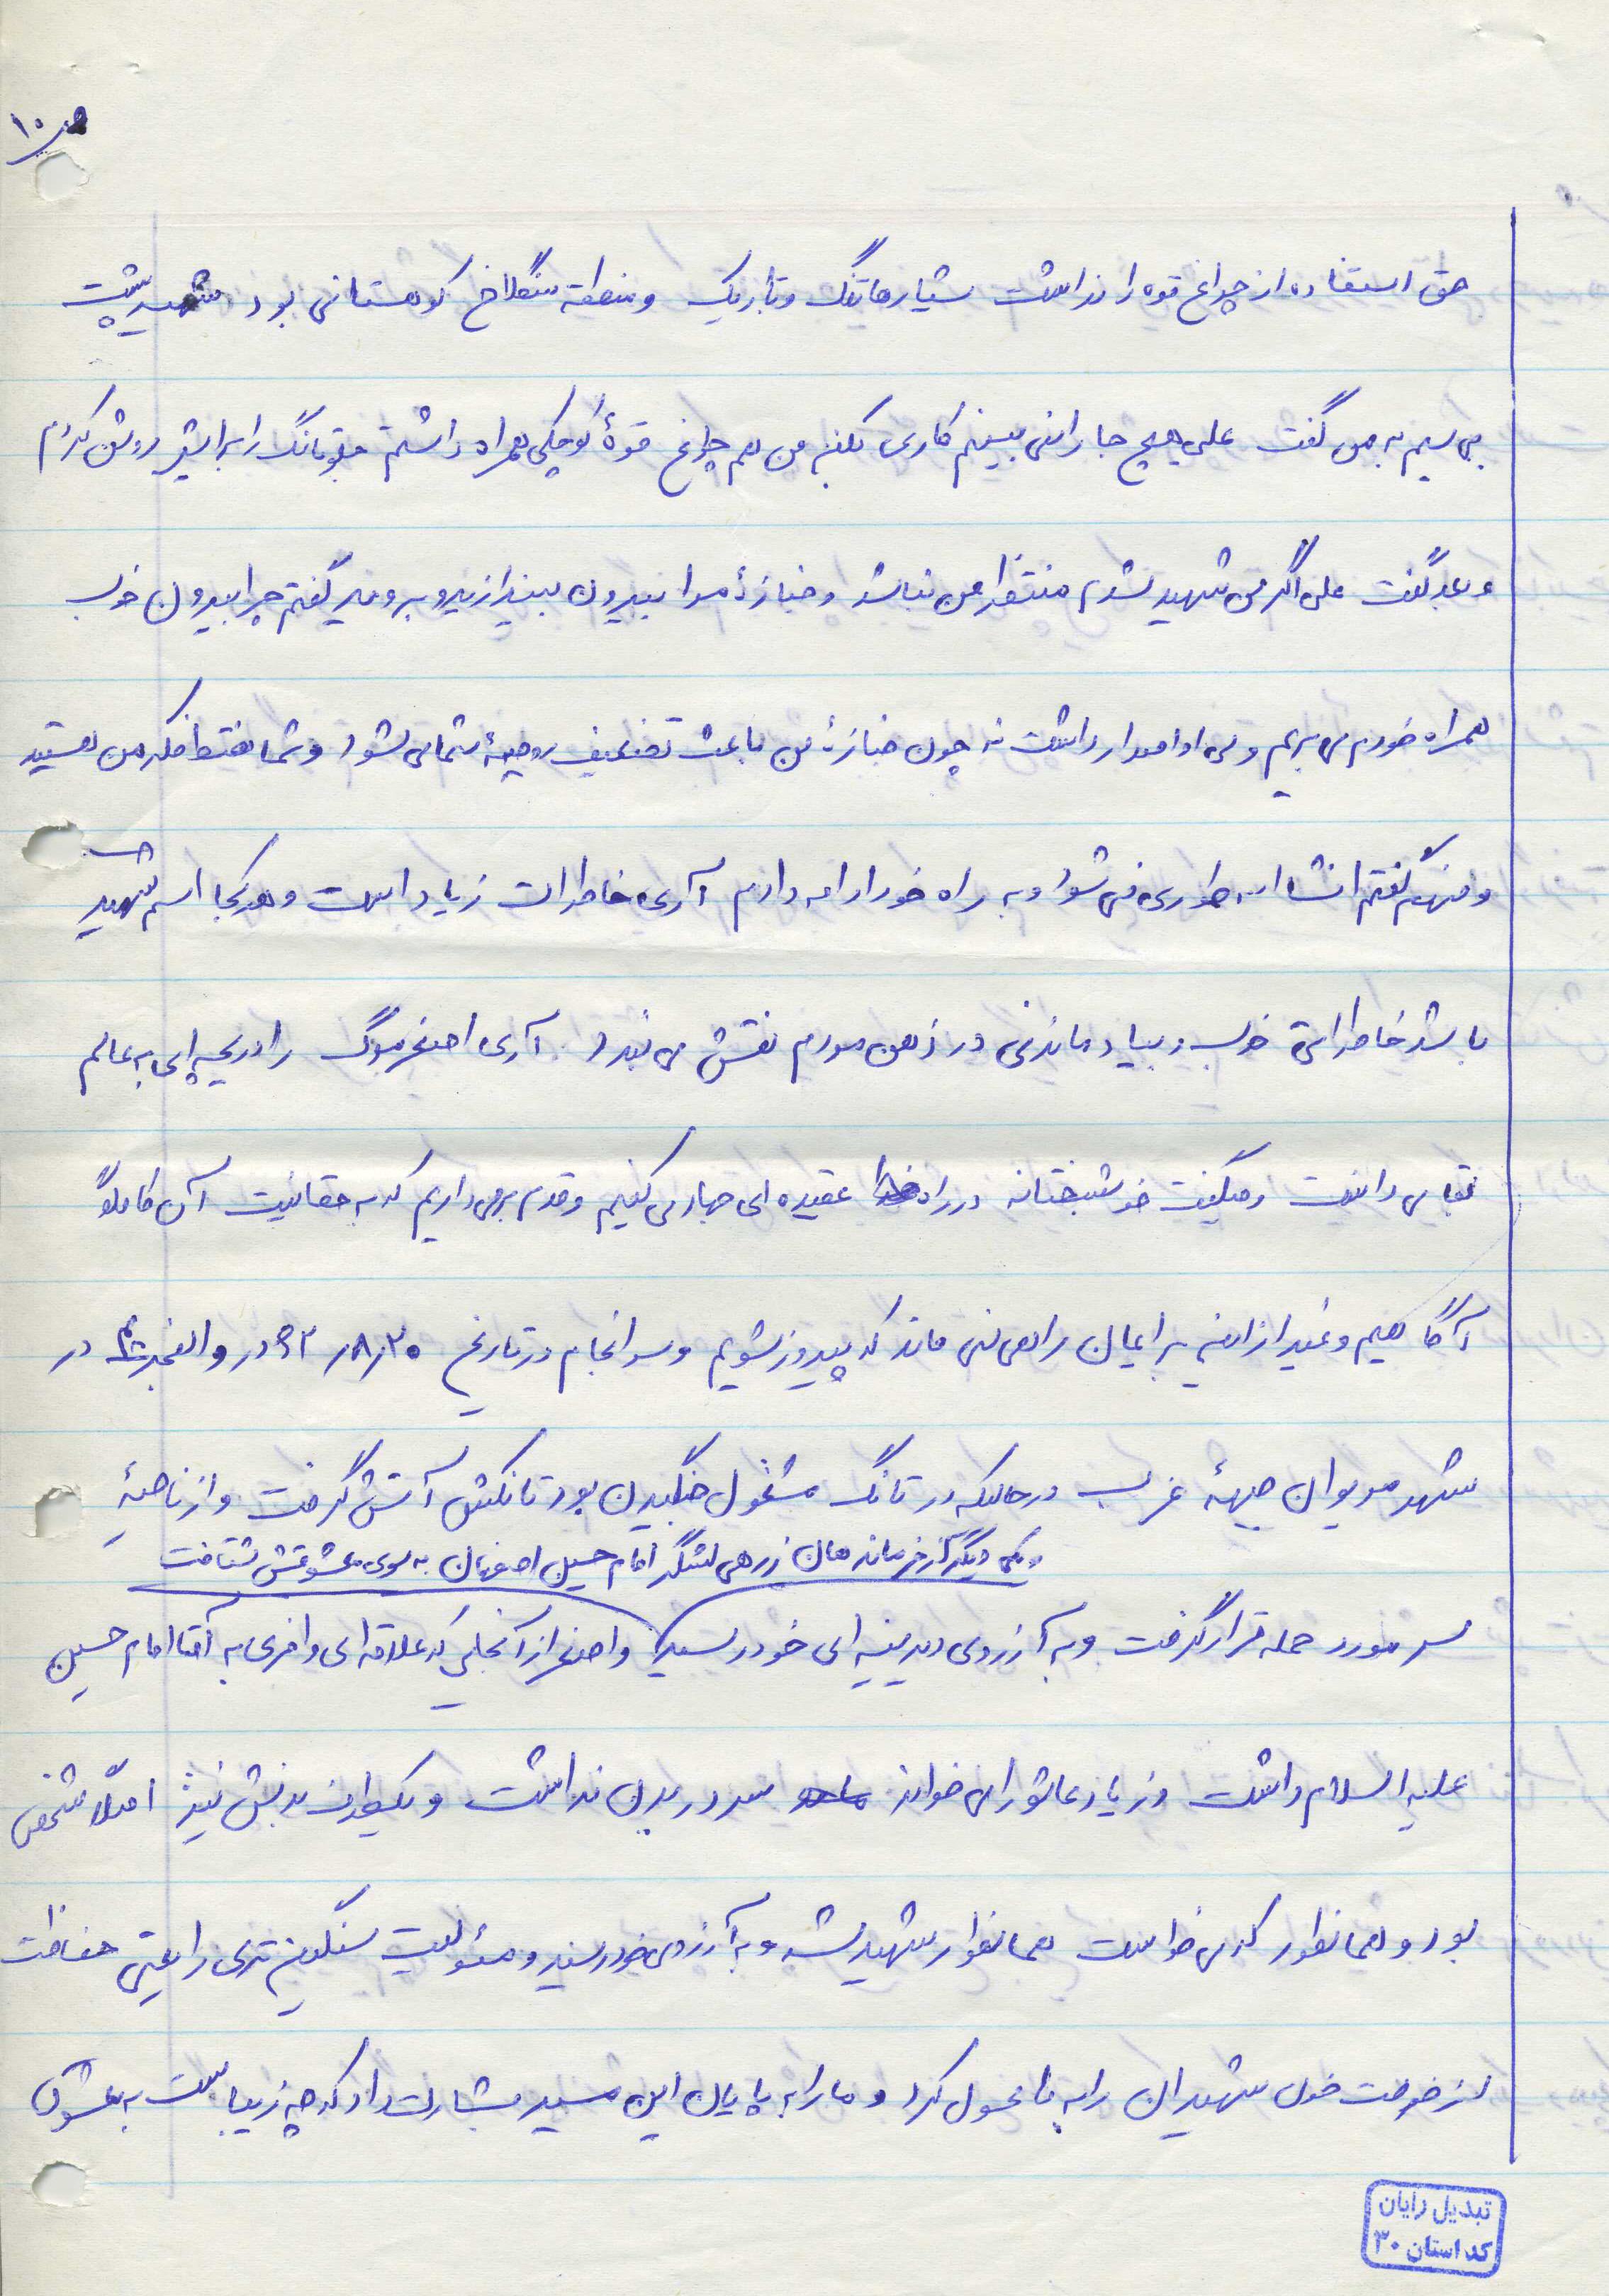 ص ۱۰
حق استفاده از چراغ قوه را نداشت شیارها تنگ و تاریک و منطقه سنگلاخ کوهستانی بود پشت
بی سیم به من گفت علی هیچ جا را نمی بینم کاری بکنید من هم چراغ قوهٔ کوچکی همراه داشتم جلو تانک را برایش روشن کردم
و بعد گفت علی اگر من شهید شدم منتظر من نباشد و جنازهٔ مرا بیرون بیندازید و بروید گفتم چرا بیرون خوب
همراه خود می بریم ولی او اصرار داشت نه چون جنازهٔ من باعث تضعیف روحیهٔ شما می شود و شما فقط فکر من هستید
و منهم گفتم انشاا... طوری نمی شود و به راه خود ادامه دادم آری خاطرات زیاد است و هر کجا اسم شهید
باشد خاطراتی خوب و بیاد ماندنی در ذهن مردم نقش می بندد . آری اصغر مرگ را دریچه ای به عالم
بقا می دانست و میگفت خوشبختانه در راه عقیده ای جهاد می کنیم و قدم برمی داریم که به حقانیت آن کاملاً
آگاهیم و غیر از این برایمان راهی نمی ماند که پیروز شویم و سرانجام در تاریخ ۶۲٫۸٫۳۰ در والفجر ۴ در
شهر مریوان جبههٔ غرب در حالیکه در تانک مشغول جنگیدن بود تانکش آتش گرفت و از ناحیهٔ
و یکی دیگر از فرماندهان زرهی لشگر امام حسین اصفهان به سوی معشوقش شتافت
سر مورد حمله قرار گرفت و به آرزوی دیرینه ای خود رسید و اصغر از آنجایی که علاقه ای وافری به آقا امام حسین
علیه السلام داشت و زیاد عاشورا می خواند سر در بدن نداشت و یکطرف بدنش نیز اصلاً مشخص
بود و همانطور که می خواست همانطور شهید شد و به آرزوی خود رسید و مسئولیت سنگین تری را یعنی حفاظت
از حرمت خون شهیدان را به ما محول کرد و ما را به پایان این مسیر بشارت داد که چه زیباست به معشوق
تبدیل رایان
کد استان ۳۰